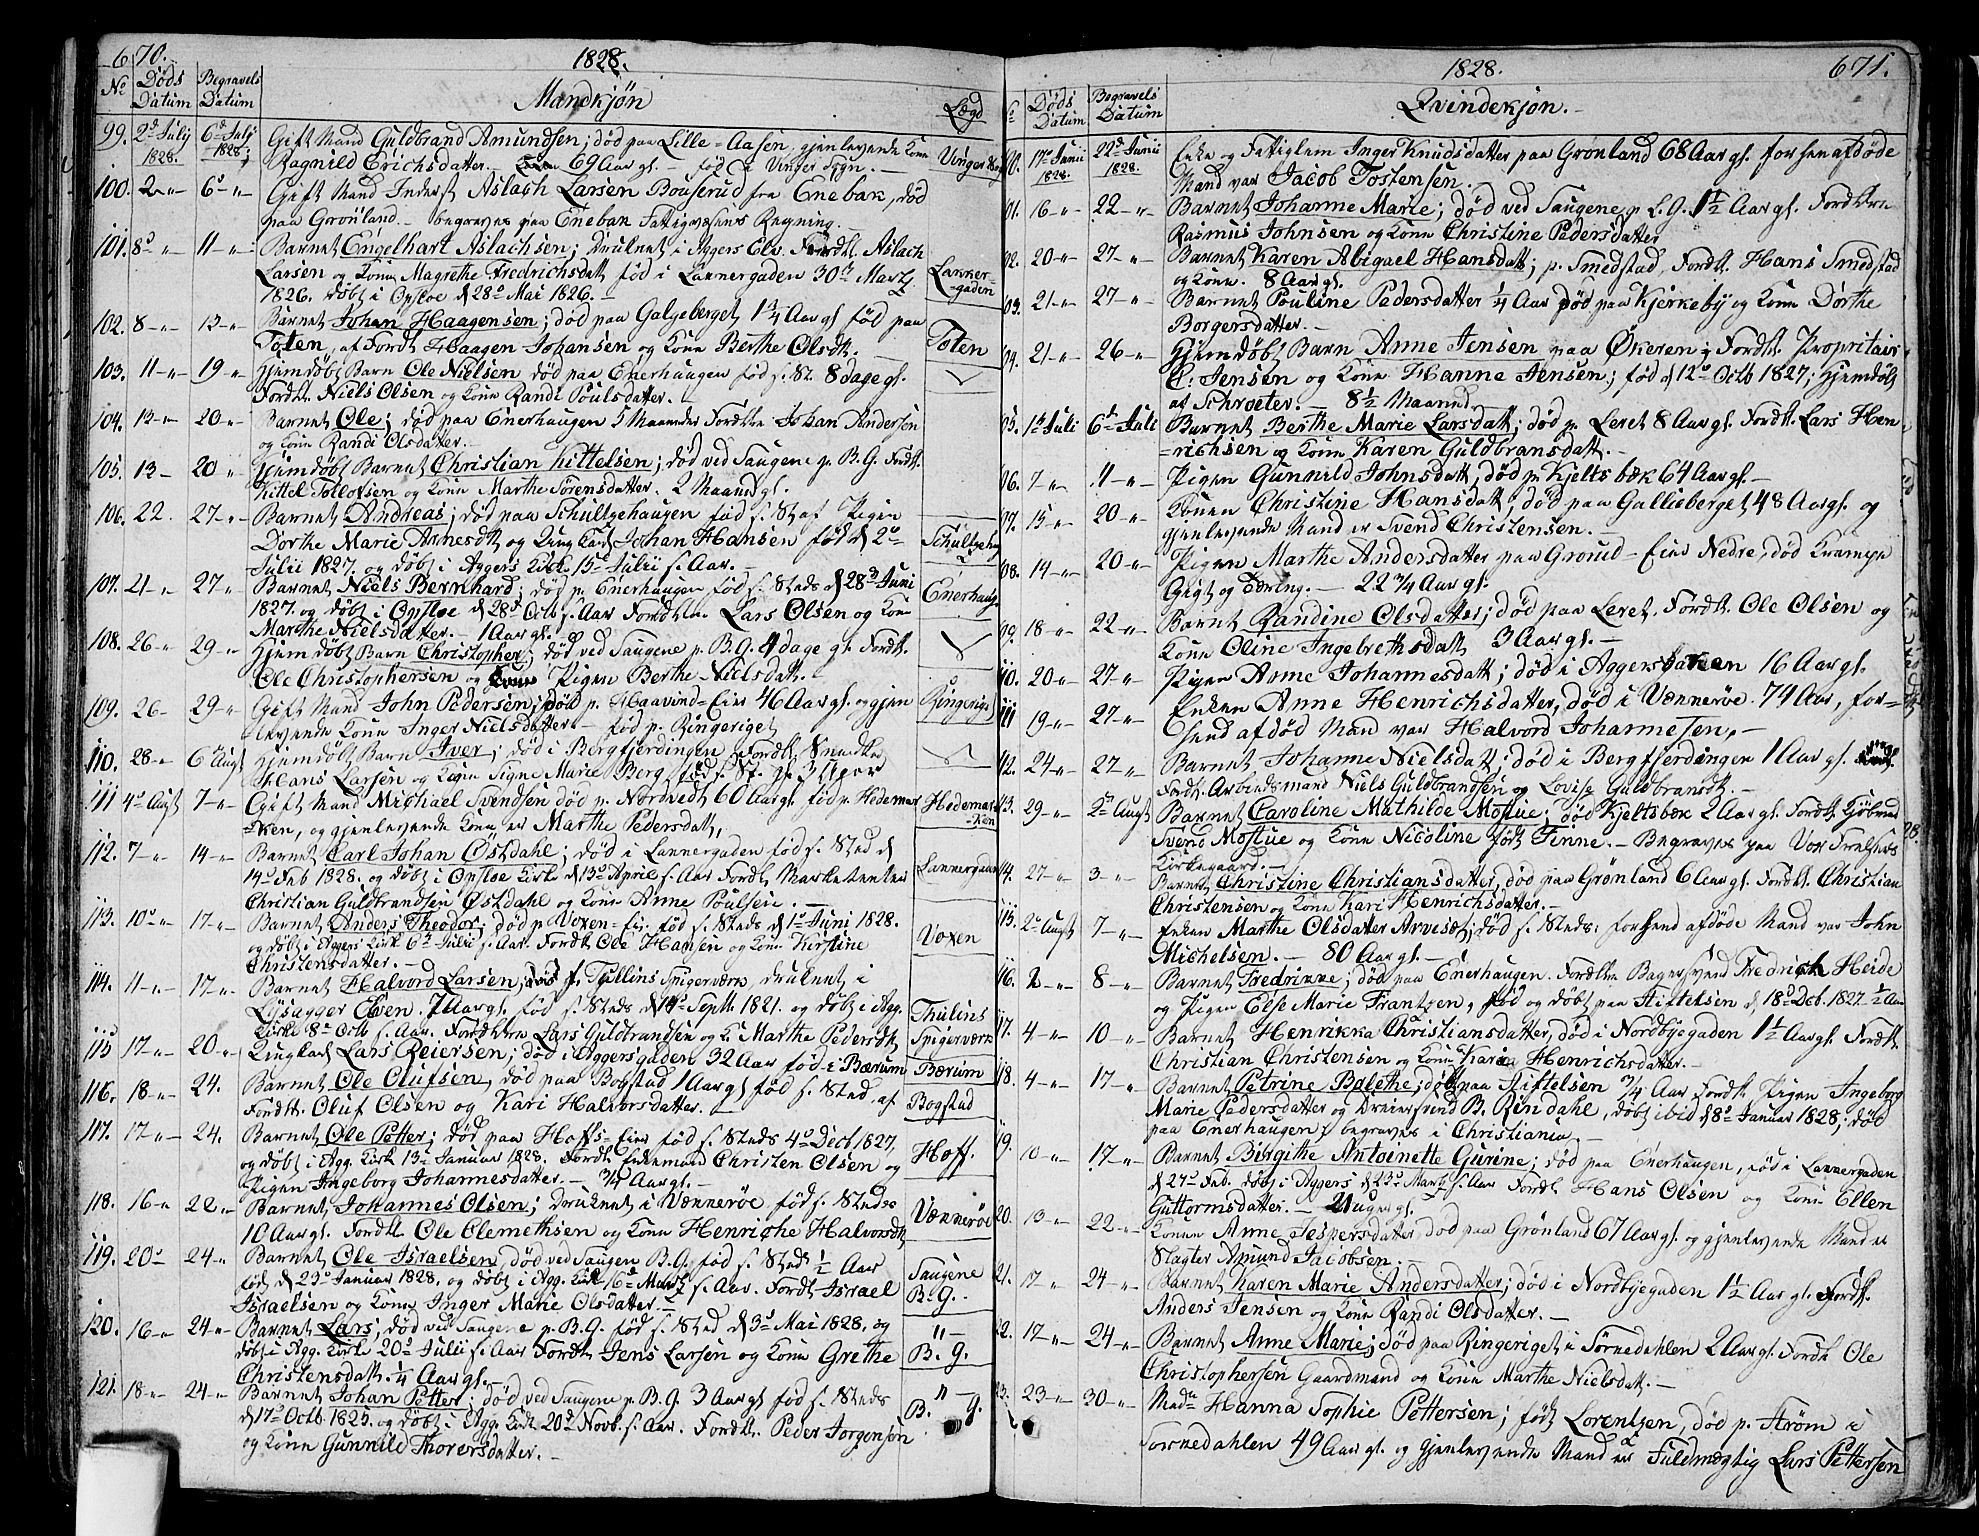 670.
1828.
No Døds Datum Begravels Datum Mandkjøn Lægd
99. 2d Julij 1828. 6d Julij 1828. Gift Mand Guldbrand Amundsen; død paa Lille-Aasen, gjenlevende Kone
Ragnild Erichsdatter. 69 Aar gl. fød i Vinger Sogn.
100. 2 6 Gift Mand Inderst Aslach Larsen Bouserud fra Enebak, død
paa Grønland begraves paa Enebak Fattigvæsens Regning.
101. 8 11 Barnet Engelhart Aslachsen; druknet i Aggers Elv. Forældre Aslach
Larsen og Kone Magrethe Fredrichsdatt fød i Lakkergaden 30te Martz Lakker-gaden
1826. døbt i Opsloe d 28 Mai 1826.
102. 8 13 Barnet Johan Haagensen; død paa Galgeberget 1 3/4 Aar gl fød paa
Toten, af Fordt Haagen Johansen og Kone Berthe Olsdt. Toten
103. 11 19 Hjemdøbt Barn Ole Nielsen død paa Enerhaugen fød s. St. 8 dage gl.
Fordt Niels Olsen og Kone Randi Poulsdatter.
104. 13 20 Barnet Ole; død paa Enerhaugen 5 Maaneder Fordtre Johan Andersen
og Kone Randi Olsdatter.
105. 13 20 Hjemdøbt Barnet Christian Kittelsen; død ved Saugene p. B.G. Fordt.
Kittel Tollofsen og Kone Marthe Sørensdatter. 2 Maaned gl.
106. 22 27 Barnet Andreas; død paa Schultzehaugen fød s. St af Pigen
Dorthe Marie Arnesdt og Ungkarl Johan Hansen fød d 2
Julii 1827. og døbt i Aggers Kirk. 15 Julii s. Aar.
107. 21 27 Barnet Niels Bernhard; død p. Enerhaugen fød s. Steds d 28 Juni Enerhaug.
1827. og døbt i Opsloe d 28 Octb s. Aar Fordtre Lars Olsen og Kone
Marthe Nielsdatter. 1 Aar gl.
108. 26 29 Hjemdøbt Barn Christopher; død ved Saugene p. B.G. 4 dage gl. Fordt.
Ole Christophersen og Pigen Berthe Nielsdatt.
109. 26 29 Gift Mand John Pedersen; død p. Haavind-Eier 46 Aar gl. og gjen
levende Kone Inger Nielsdatter fød p. Ringeriget
110. 28 6 Augt Hjemdøbt Barn Iver; død i Bergfjerdingen Fordt. Snedker
Hans Larsen og Kone Signe Marie Berg, fød s. St. gl. 3 Uger
111 4 Augt 7 Gift Mand Michael Svendsen død p. Nordvedt 60 Aar gl. fød p. Hedemar Hedemar-ken
ken, og gjenlevende Kone er Marthe Pedersdatt,
112. 7 14 Barnet Carl Johan Østdahl; død i Lakkergaden fød s. Sted d
14 Feb 1828. og døbt i Opsloe Kirke d 13 April s. Aar Fordt Marketenter
Christian Guldbrandsen Østdahl og Kone Anne Poulsen.
113. 10 17 Barnet Anders Theodor; død p. Voxen-Ei. fød s. Steds d 1 Juni 1828.
og døbt i Aggers Kirk 6 Julii s. Aar. Fordt Ole Hansen og Kone Kirstine Voxen
Christensdatter.
114. 11 17 Barnet Halvord Larsen; Tullins Spigerværk druknet i
Lysagger Elven. 7 Aar gl. fød s. Steds d 14 Septt. 1821. og døbt i Agg. Thulins
Kirke 8 Octb s. Aar. Fordtre Lars Guldbrandsen og K. Marthe Pedersdt Spigerværk
115 17 20 Ungkarl Lars Reiersen; død i Aggersgaden 32 Aar fød i Bærum Bærum
116. 18 24. Barnet Ole Olufsen, død paa Bogstad 1 Aar gl fød s. Sted af
Fordt. Oluf Olsen og Kari Halvorsdatter. Bogstad
117. 17 24. Barnet Ole Petter; død paa Hoffs-Eier fød s. Steds 4 Dect 1827,
og døbt i Agg. Kirk 13 Januar 1828. Fordt Enkemand Christen Olsen og Hoff.
Pigen Ingeborg Johannesdatter. 3/4 Aar gl.
118. 16 22 Barnet Johannes Olsen; druknet i Vænnerøe fød s. Steds
10 Aar gl. Fordt Ole Clemethsen og Kone Henriche Halvorsdt Vænnerøe
119. 20 24 Barnet Ole Israelsen, død ved Saugen B.G fød s. Steds 1/2 Aar
fød d 23 Januar 1828. og døbt i Agg. Kirk 16 Martz s. Aar. Fordt Israel Saugene
Israelsen og Kone Inger Marie Olsdatter. B.G.
120. 16 24 Barnet Lars, død ved Saugene p. B.G. fød s. Sted d 3 Mai 1828. og
døbt i Agg. Kirke 20 Julii s. Aar Fordt Jens Larsen og Kone Grethe B.G.
Christensdatt. 1/4 Aar gl.
121. 18 24 Barnet Johan Petter; død ved Saugene p. B.G. 3 Aar gl fød s. Steds
d 17 Octb. 1825. og døbt i Agg. Kirk 20 Novb. s. Aar. Fordt. Peder Jorgensen B. G.
og Kone Gunnild Thorersdatter.
1828. 671.
Døds Datum Begravels Datum Qvindekjøn.
17 Junii 1828. 22 Junii 1828. Enke og Fattiglem Inger Knudsdatter paa Grønland 68 Aar gl. forhen afdøde
Mand var Jacob Tostensen.
01. 16 22 Barnet Johanne Marie; død ved Saugene p L.G. 1 1/2 Aar gl. Fordtre
Rasmus Johnsen og Kone Christine Pedersdatter
02. 20 27 Barnet Karen Abigael Hansdatt; p. Smedstad, Fordt. Hans Smedstad
og Kone. 8 Aar gl.
03. 21 27 Barnet Pouline Pedersdatter 1/4 Aar død paa Kjerkeby og Kone Dorthe
Borgersdatter.
04. 21 26 Hjemdøbt Barn Anne Jensen paa Økeren; Fordt. Propritair
C. Jensen og Kone Hanne Jensen; fød d 12 Octb 1827; hjemdøbt
af Schrøeter. 8 1/2 Maaned
05. 1 Juli 6 Juli Barnet Berthe Marie Larsdatt; død p. Leret 8 Aar gl. Fordt. Lars Hen
richsen og Kone Karen Guldbransdatt.
06. 7 11 Pigen Gunnild Johnsdatt, død p. Kjelts bæk 64 Aar gl.
07. 15 20 Konen Christine Hansdatt, død paa Gallieberget 48 Aar gl. og
gjenlevende Mand er Svend Christensen.
08. 14 20 Pigen Marthe Andersdatter paa Grorud-Eier Nedre, død Krampe
Gigt og Tæring. 22 3/4 Aar gl.
09. 18 22 Barnet Randine Olsdatter; død paa Leret. Fordt. Ole Olsen og
Kone Oline Ingebrethsdatt 3 Aar gl.
10. 20 27 Pigen Anne Johannesdatt; død i Aggersbakken 16 Aar gl.
111 19 27 Enken Anne Henrichsdatter, død i Vænnerøe 74 Aar, for-
hend afdød Mand var Halvord Johannesen.
12. 24 27 Barnet Johanne Nielsdatt; død i Bergfjerdingen 1 Aar gl.
Fordt. Arbeidsmand Niels Guldbrandsen og Lovise Guldbransdt.
13. 29 2 Augt Barnet Caroline Mathilde Mostue; død Kjeltsbæk 2 Aar gl. Fordt Kjøbmd
Svend Mostue og Kone Nicoline født Finne. Begraves paa Vor Frelsers
Kirkegaard.
14. 27 3 Barnet Christine Christiansdatter, død paa Grønland 6 Aar gl. Fordt. Christian
Christensen og Kone Kari Henrichsdatter.
115. 2 Augt 7 Enken Marthe Olsdatter Arveset; død s. Steds. forhend afdøde Mand var John
Michelsen. 80 Aar gl.
16. 2 8 Barnet Fredrikke; død paa Enerhaugen. Fordtre Bagersvend Fredrich Heide
og Pigen Else Marie Frantzen, fød og døbt paa Stiftelsen d 18 Dcb. 1827. 1/2 Aar
17. 4 10 Barnet Henrikka Christiansdatter, død i Nordbyegaden 1 1/2 Aar gl. Fordt.
Christian Christensen og Kone Kari Henrichsdatter.
18. 4 17 Barnet Petrine Bolethe; døbt paa Stiftelsen 3/4 Aar Fordt. Pigen Ingeborg
Marie Pedersdatter og Dreiersvend B. Rindahl, døbt ibid d 8 Januar 1828; død
paa Enerhaugen; begraves i Christiania.
19. 10 17 Barnet Birgithe Antoinette Gurine; død paa Enerhaugen, fød i Lakkergaden
d 27 Feb. døbt i Aggers d 23 Martz s. Aar Fordt Hans Olsen og Kone Ellen
Guttormsdatter. 21 Uger gl.
20. 13 22 Konen Anne Jespersdatter død paa Grønland 67 Aar gl. og gjenlevende Mand er
Slagter Amund Jacobsen.
21. 17 24 Barnet Karen Marie Andersdatter; død i Nordbyegaden 1 1/2 Aar gl. Fordt.
Anders Jensen og Kone Randi Olsdatter.
22. 17 24 Barnet Anne Marie; død paa Ringeriget i Sørkedahlen 2 Aar gl. Fordt Ole
Christophersen Gaardmand og Kone Marthe Nielsdatt.
23. 23 30 Madm Hanna Sophie Pettersen; født Lorentzen, død p. Strøm i
Sørkedahlen 49 Aar gl. og gjenlevende Mand er Fuldmægtig Lars Pettersen